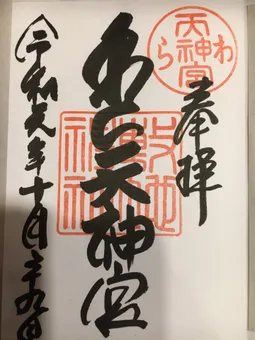 わら天神宮
奉拝
わら天神宮
敷地
神社
令和元年十月二十九日